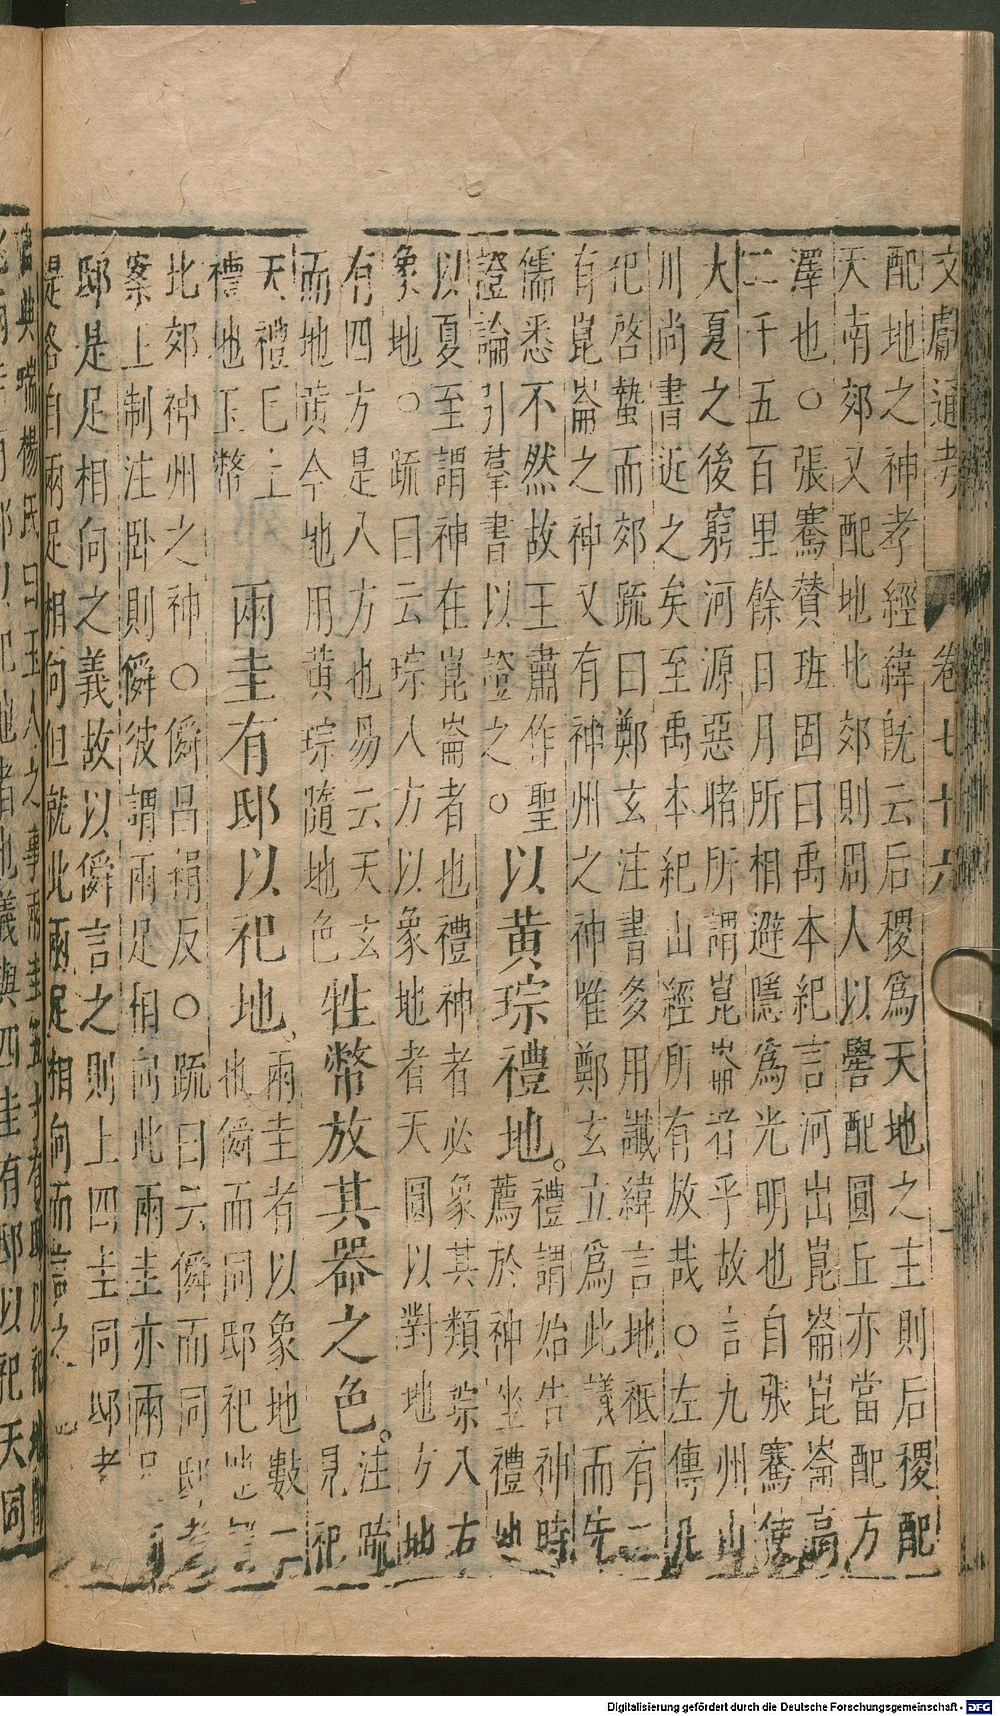 文獻通考　卷七十六
配地之神孝經緯既云后稷爲天地之主則后稷配
天南郊又配地北郊則周人以嚳配圓丘亦當配方
澤也○張騫贊班固曰禹本紀言河出崑崙崑崙高
二千五百里餘日月所相避隱爲光明也自張騫使
大夏之後窮河源惡睹所謂崑崙者乎故言九州山
川尚書近之矣至禹本紀山經所有放哉○左傳凡
祀啓蟄而郊疏曰鄭玄注書多用讖緯言地祗有二
有崑崙之神又有神州之神唯鄭玄立爲此議而先
儒悉不然故王肅作聖
證論引羣書以證之○
以黄琮禮地。
禮謂始告神時
薦於神坐禮地
以夏至謂神在崑崙者也禮神者必象其類琮八方
象地○疏曰云琮八方以象地者天圓以對地方地
有四方是八方也易云天玄
而地黄今地用黄琮隨地色
牲幣放其器之色。
注疏
見祀
天禮
禮地玉幣
兩圭有邸以祀地。
兩圭者以象地數二
也僢而同邸祀地
北郊神州之神○僢昌絹反○疏曰云僢而同邸者
案上制注卧則僢彼謂兩足相向此兩圭亦兩足
邸是足相向之義故以僢言之則上四圭同邸者
是各自兩足相向但就此兩足相向而言之